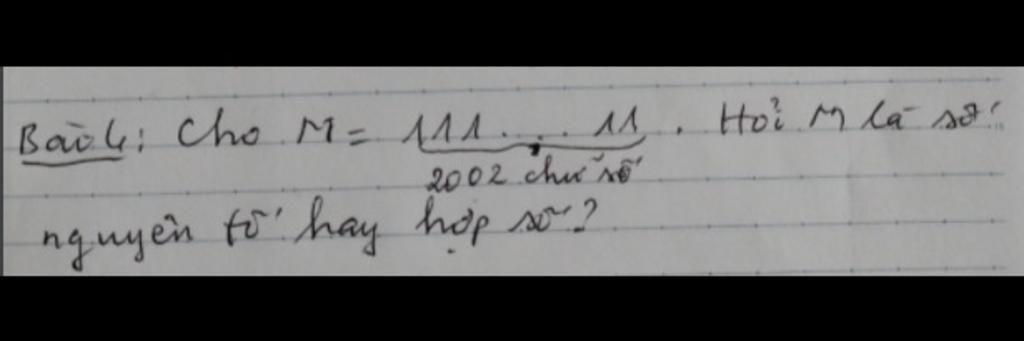 Bài 4: Cho M = 111...11. Hỏi M là số
2002 chữ số
nguyên tố hay hợp số?